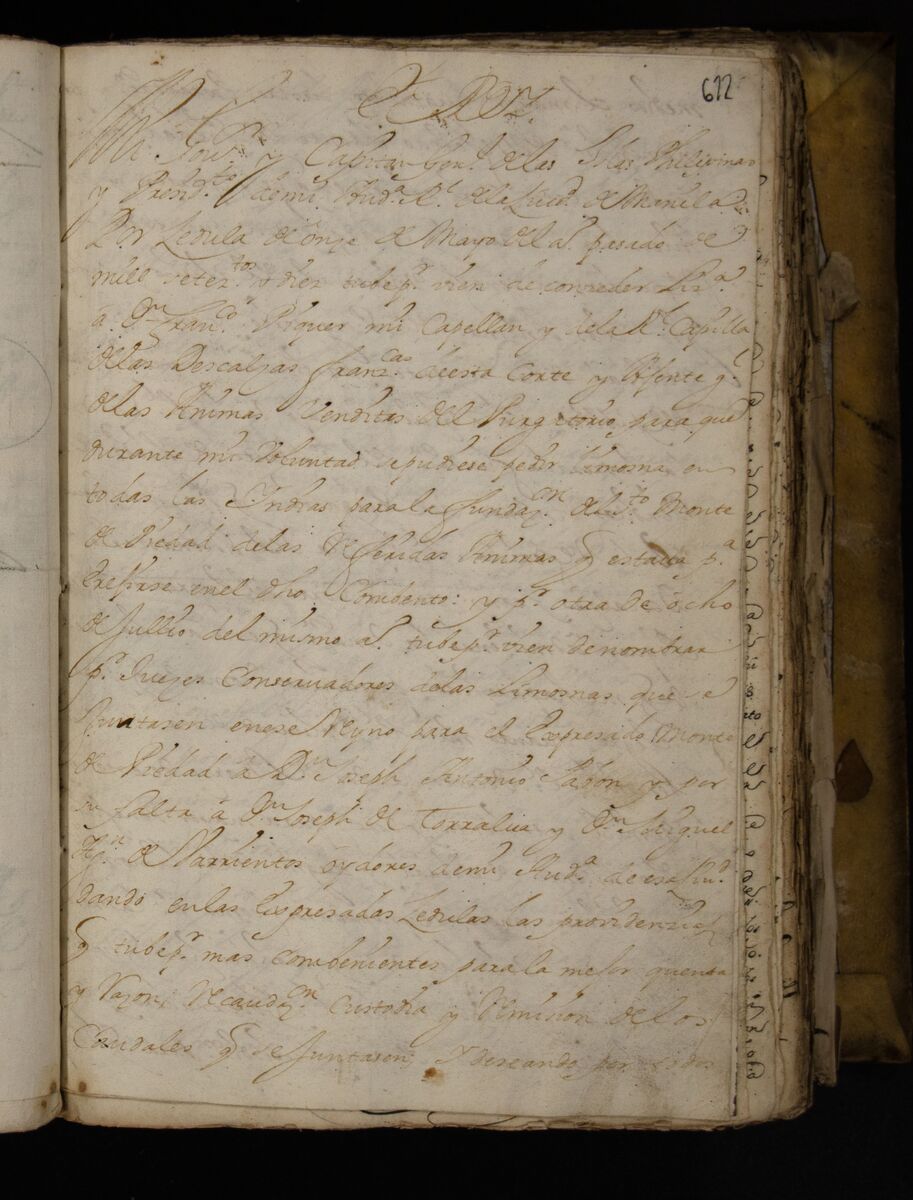 622
El Rey.
Mi Gov.or y Capitan Gen.l de las Islas Philipinas
y Presid.te de mi Aud.a R.l de la Ciud.d de Manila
Por Zedula de onze de Mayo del a.o pasado de
mill setez.tos y diez tube p.r vien de conzeder liz.a
a D.n Fran.co Piquer mi Capellan y de la R.l Capilla
de las Descalzas Franz.cas de esta Corte y
de las Animas Venditas del Purgatorio, para que
durante mi Voluntad pudiese pedir limosna en
todas las Indias para la fundaz.on del s.to Monte
de Piedad de las Referidas Animas q estaua p.a
erejirse en el dho Combento: y p.r otra de ocho
de Jullio del mismo a.o tube p.r vien de nombrar
p.r Juezes Conservadores de las Limosnas que se
Juntasen en ese Reyno para el Expresado Monte
de Piedad a D.n Joseph Antonio Pabon y por
su falta a D.n Joseph de Torralua y D.n Miguel
de Barrientos oydores de mi Aud.a de esa Ciu.d
dando en las Expresadas Zedulas las providenzias
q tube p.r mas combenientes para la mejor quenta
y Razon, Recaudaz.on Custodia y Remision de los
Caudales q se Juntasen, y deseando por todos